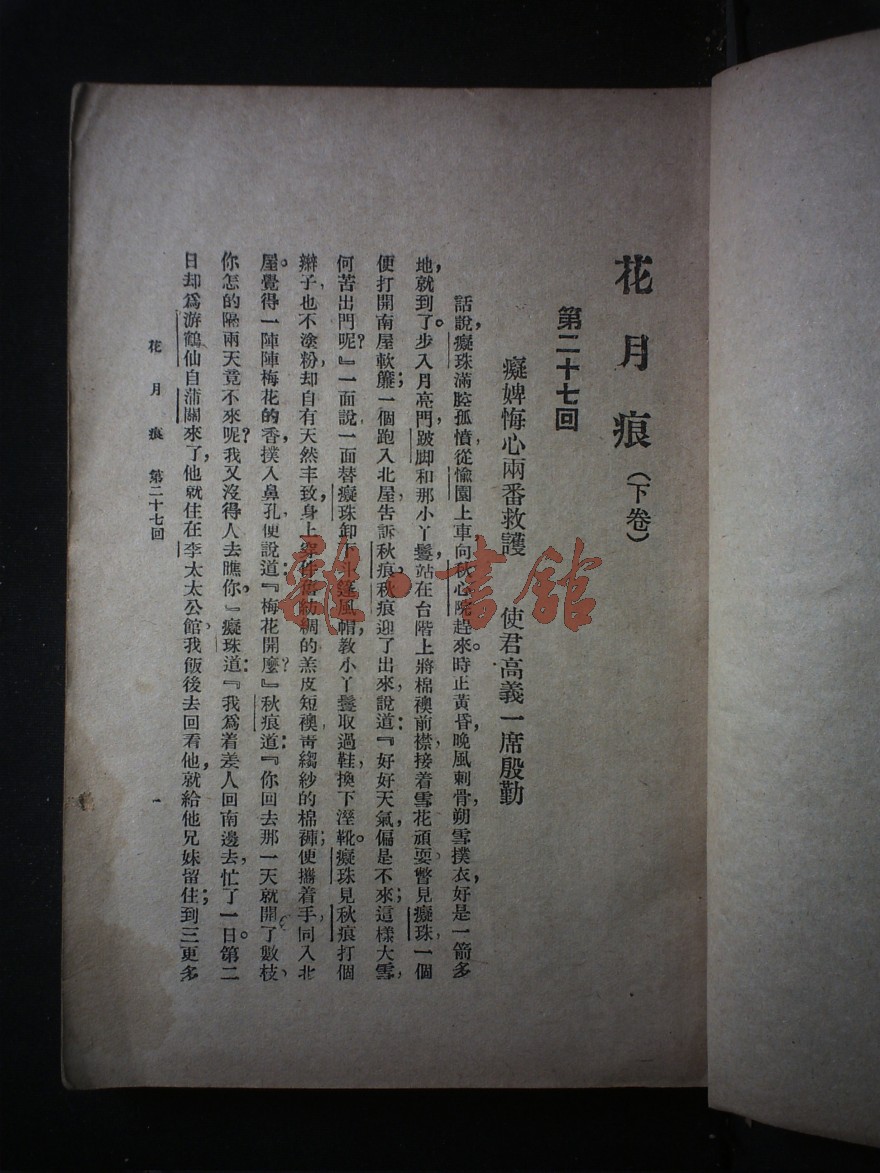 花月痕（下卷）
第二十七回
癡婢悔心兩番救護　使君高義一席殷勤
話說，癡珠滿腔孤憤，從愉園上車，向秋心院趕來。時止黃昏，晚風刺骨，朔雪撲衣，好是一箭多
地，就到了。步入月亮門，跛脚和那小丫鬟，站在台階上，將棉襖前襟，接着雪花頑耍，瞥見癡珠，一個
便打開南屋軟簾；一個跑入北屋，告訴秋痕，秋痕迎了出來，說道：『好好天氣，偏是不來；這樣大雪，
何苦出門呢？』一面說，一面替癡珠卸下斗篷風帽，教小丫鬟取過鞋，換下溼靴。癡珠見秋痕打個
辮子，也不塗粉，却自有天然丰致，身上穿件 紡綢的羔皮短襖，青縐紗的棉褲；便攜着手，同入北
屋。覺得一陣陣梅花的香，撲入鼻孔，便說道：『梅花開麼？』秋痕道：『你回去那一天，就開了數枝，
你怎的隔兩天竟不來呢？我又沒得人去瞧你，』癡珠道：『我爲着差人回南邊去，忙了一日。第二
日却爲游鶴仙自蒲關來了，他就住在李太太公館，我飯後去回看他，就給他兄妹留住；到三更多
花月痕　第二十七回　一
雜·書館